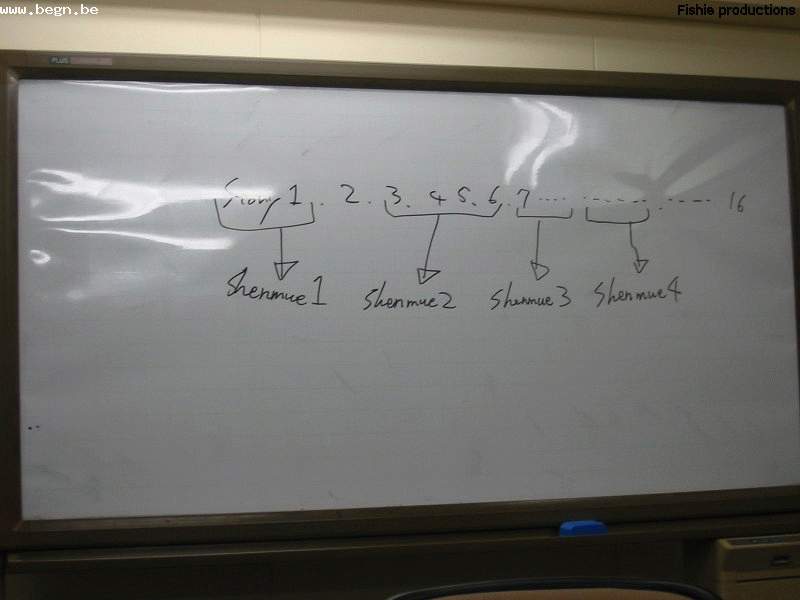 www.begn.be
Fishie productions
PLUS
Story 1 . 2 . 3. 4 5. 6. 7 .... ------ . ---- 16
Shenmue 1 Shenmue 2 Shenmue 3 Shenmue 4